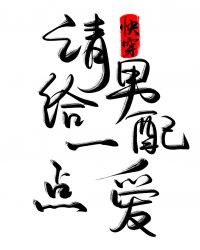 快穿
请给
男配
一点
爱